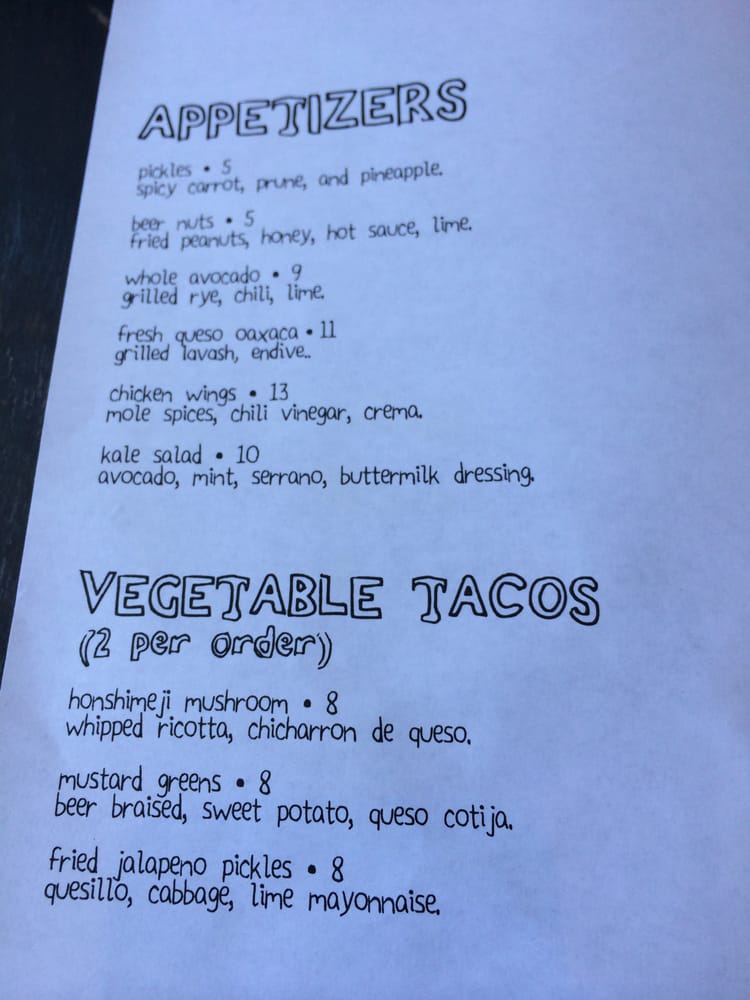 APPETIZERS
pickles • 5
spicy carrot, prune, and pineapple.
beer nuts • 5
fried peanuts, honey, hot sauce, lime.
whole avocado • 9
grilled rye, chili, lime.
fresh queso oaxaca • 11
grilled lavash, endive..
chicken wings • 13
mole spices, chili vinegar, crema.
kale salad • 10
avocado, mint, serrano, buttermilk dressing.
VEGETABLE TACOS
(2 per order)
honshimeji mushroom • 8
whipped ricotta, chicharron de queso.
mustard greens • 8
beer braised, sweet potato, queso cotija.
fried jalapeno pickles • 8
quesillo, cabbage, lime mayonnaise.